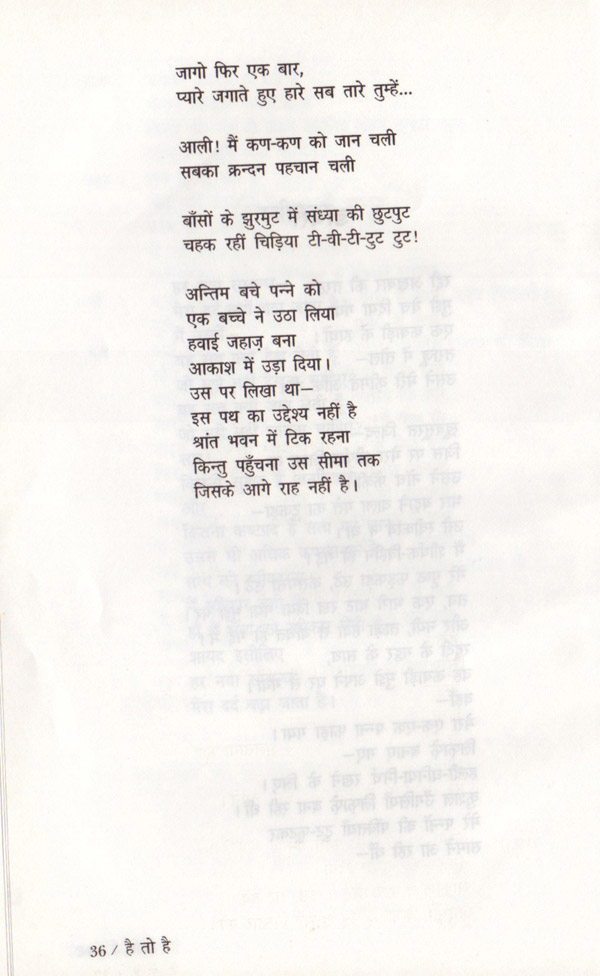 जागो फिर एक बार,
प्यारे जगाते हुए हारे सब तारे तुम्हें...
आली! मैं कण-कण को जान चली
सबका क्रन्दन पहचान चली
बाँसों के झुरमुट में संध्या की छुटपुट
चहक रहीं चिड़िया टी-वी-टी-टुट टुट!
अन्तिम बचे पन्ने को
एक बच्चे ने उठा लिया
हवाई जहाज़ बना
आकाश में उड़ा दिया।
उस पर लिखा था—
इस पथ का उद्देश्य नहीं है
श्रांत भवन में टिक रहना
किन्तु पहुँचना उस सीमा तक
जिसके आगे राह नहीं है।
36 / है तो है